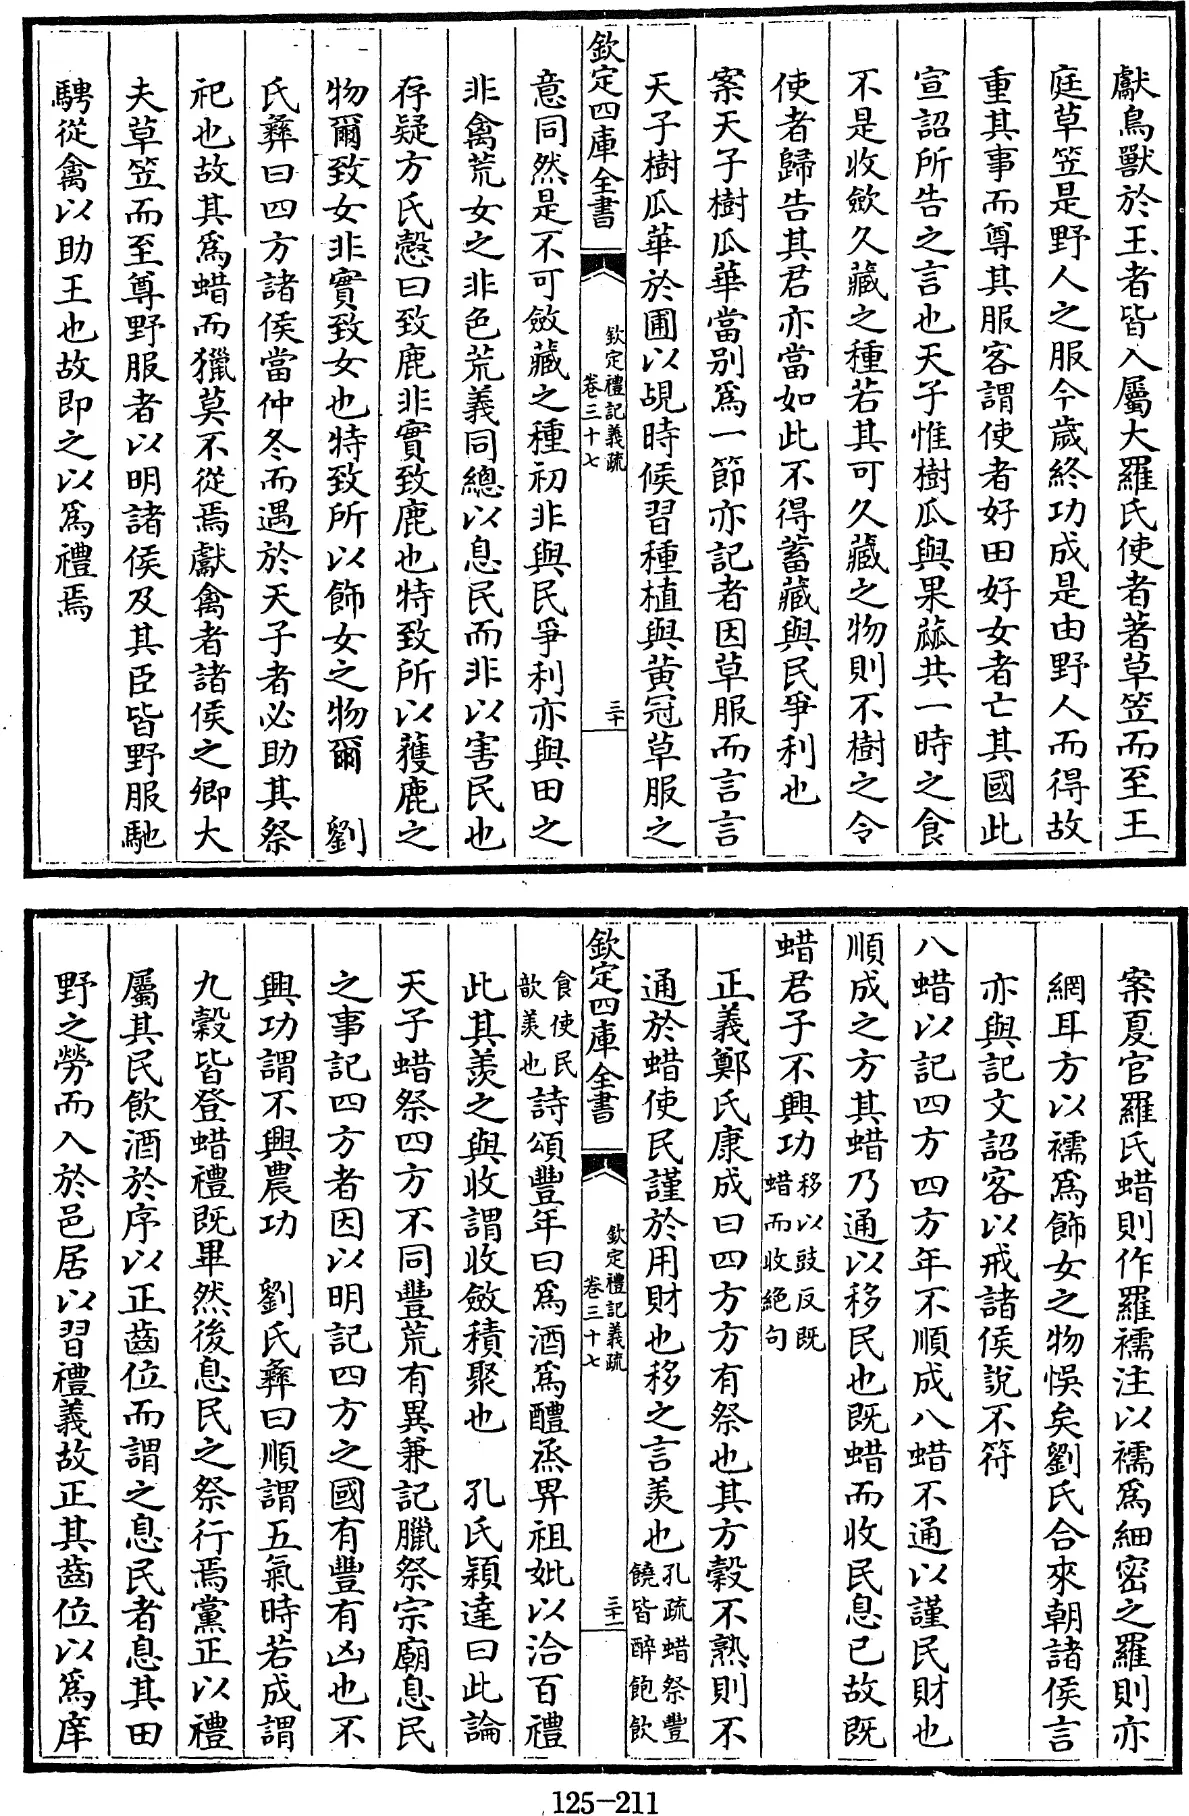 獻鳥獸於王者皆入屬大羅氏使者著草笠而至王
庭草笠是野人之服今歲終功成是由野人而得故
重其事而尊其服客謂使者好田好女者亡其國此
宣詔所告之言也天子惟樹瓜與果蓏共一時之食
不是收歛久藏之種若其可久藏之物則不樹之令
使者歸告其君亦當如此不得蓄藏與民爭利也
案天子樹瓜華當别爲一節亦記者因草服而言言
天子樹瓜華於圃以覘時候習種植與黃冠草服之
欽定四庫全書
欽定禮記義疏
卷三十七
三十
意同然是不可斂藏之種初非與民爭利亦與田之
非禽荒女之非色荒義同總以息民而非以害民也
存疑方氏慤曰致鹿非實致鹿也特致所以獲鹿之
物爾致女非實致女也特致所以飾女之物爾　劉
氏彝曰四方諸侯當仲冬而遇於天子者必助其祭
祀也故其爲蜡而獵莫不從焉獻禽者諸侯之卿大
夫草笠而至尊野服者以明諸侯及其臣皆野服馳
騁從禽以助王也故即之以爲禮焉
案夏官羅氏蜡則作羅襦注以襦爲細密之羅則亦
網耳方以襦爲飾女之物悞矣劉氏合來朝諸侯言
亦與記文詔客以戒諸侯說不符
八蜡以記四方四方年不順成八蜡不通以謹民財也
順成之方其蜡乃通以移民也既蜡而收民息已故既
蜡君子不興功移以豉反既
蜡而收絶句
正義鄭氏康成曰四方方有祭也其方穀不熟則不
通於蜡使民謹於用財也移之言羨也孔疏蜡祭豐
饒皆醉飽飲
欽定四庫全書
欽定禮記義疏
卷三十七
三十一
食使民
歆羨也詩頌豐年曰爲酒爲醴烝畀祖妣以洽百禮
此其羨之與收謂收斂積聚也　孔氏穎達曰此論
天子蜡祭四方不同豐荒有異兼記臘祭宗廟息民
之事記四方者因以明記四方之國有豐有凶也不
興功謂不興農功　劉氏彝曰順謂五氣時若成謂
九穀皆登蜡禮既畢然後息民之祭行焉黨正以禮
屬其民飲酒於序以正齒位而謂之息民者息其田
野之勞而入於邑居以習禮義故正其齒位以爲庠
125-211